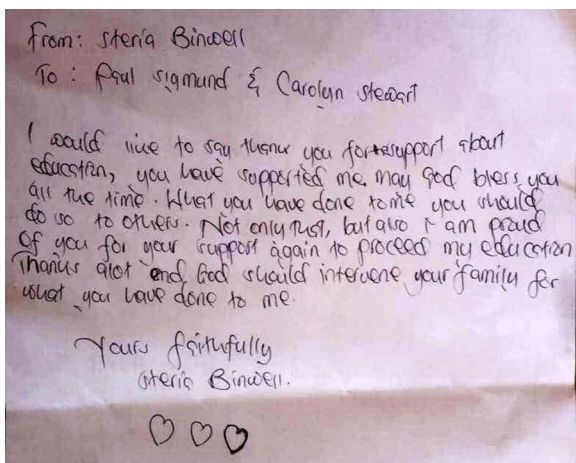 From: Steria Binwell
To: Paul Sigmund & Carolyn Stewart
I would like to say thank you for support about
education, you have supported me. may God bless you
all the time. What you have done to me you should
do so to others. Not only that, but also i am proud
of you for your support again to proceed my education
Thanks alot and God should intervene your family for
what you have done to me.
Yours faithfully
Steria Binwell.